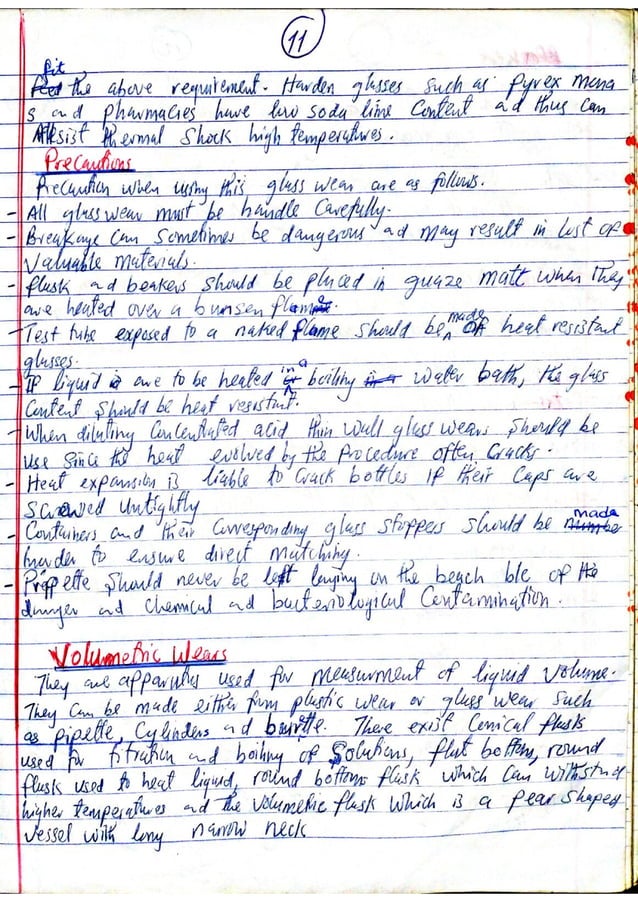 11
fit
the above requirement. Harden glasses such as Pyrex mona
s and pharmacies have low soda lime content ad thus can
Resist thermal shock high temperatures.
Precautions
Precaution when using this glass wear are as follows.
- All glass wear must be handle Carefully.
- Breakage can sometimes be dangerous ad may result in lost of
Valuable materials.
- flask and beakers should be placed in guaze matt when they
are heated over a bunsen flame.
- Test tube exposed to a naked flame should be made OF heat resistant
glasses.
- IF liquid are to be heated in a boiling water bath, the glass
Content should be heat resistant.
- When diluting Concentrated acid thin wall glass wears should be
use since the heat evolved by the Procedure often Cracks.
- Heat expansion is liable to Crack bottles IF their Caps are
Screwed untightly
- Containers and their Corresponding glass stoppers should be made
harder to ensure direct matching.
- Propette should never be left laying on the beach b/c of the
danger and chemical and bacteriological Contamination.
Volumetric Wears
They are apparatus used for measurment of liquid volume.
They can be made either from plastic wear or glass wear such
as pipette, Cylinders and burette. There exist Conical flask
used for titration and boiling of Solutions, flat bottom, round
flask used to heat liquid, round bottom flask which Can withstand
higher temperatures and the volumetric flask which is a pear shaped
vessel with long narrow neck